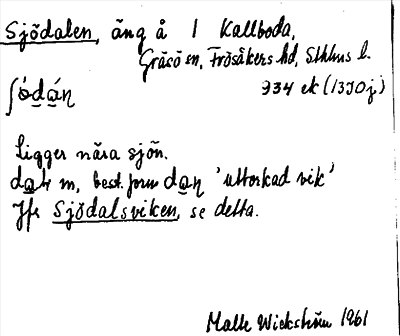 Sjödalen, äng å 1 Kallboda,
Gräsö sn, Frösåkers hd, Sthlms l.
ʃó̱da̱ṇ 934 ek (13J0j)
Ligger nära sjön.
da̱ɫ m, best. form da̱ṇ 'uttorkad vik'
Jfr Sjödalsviken, se detta.
Malte Wickström 1961